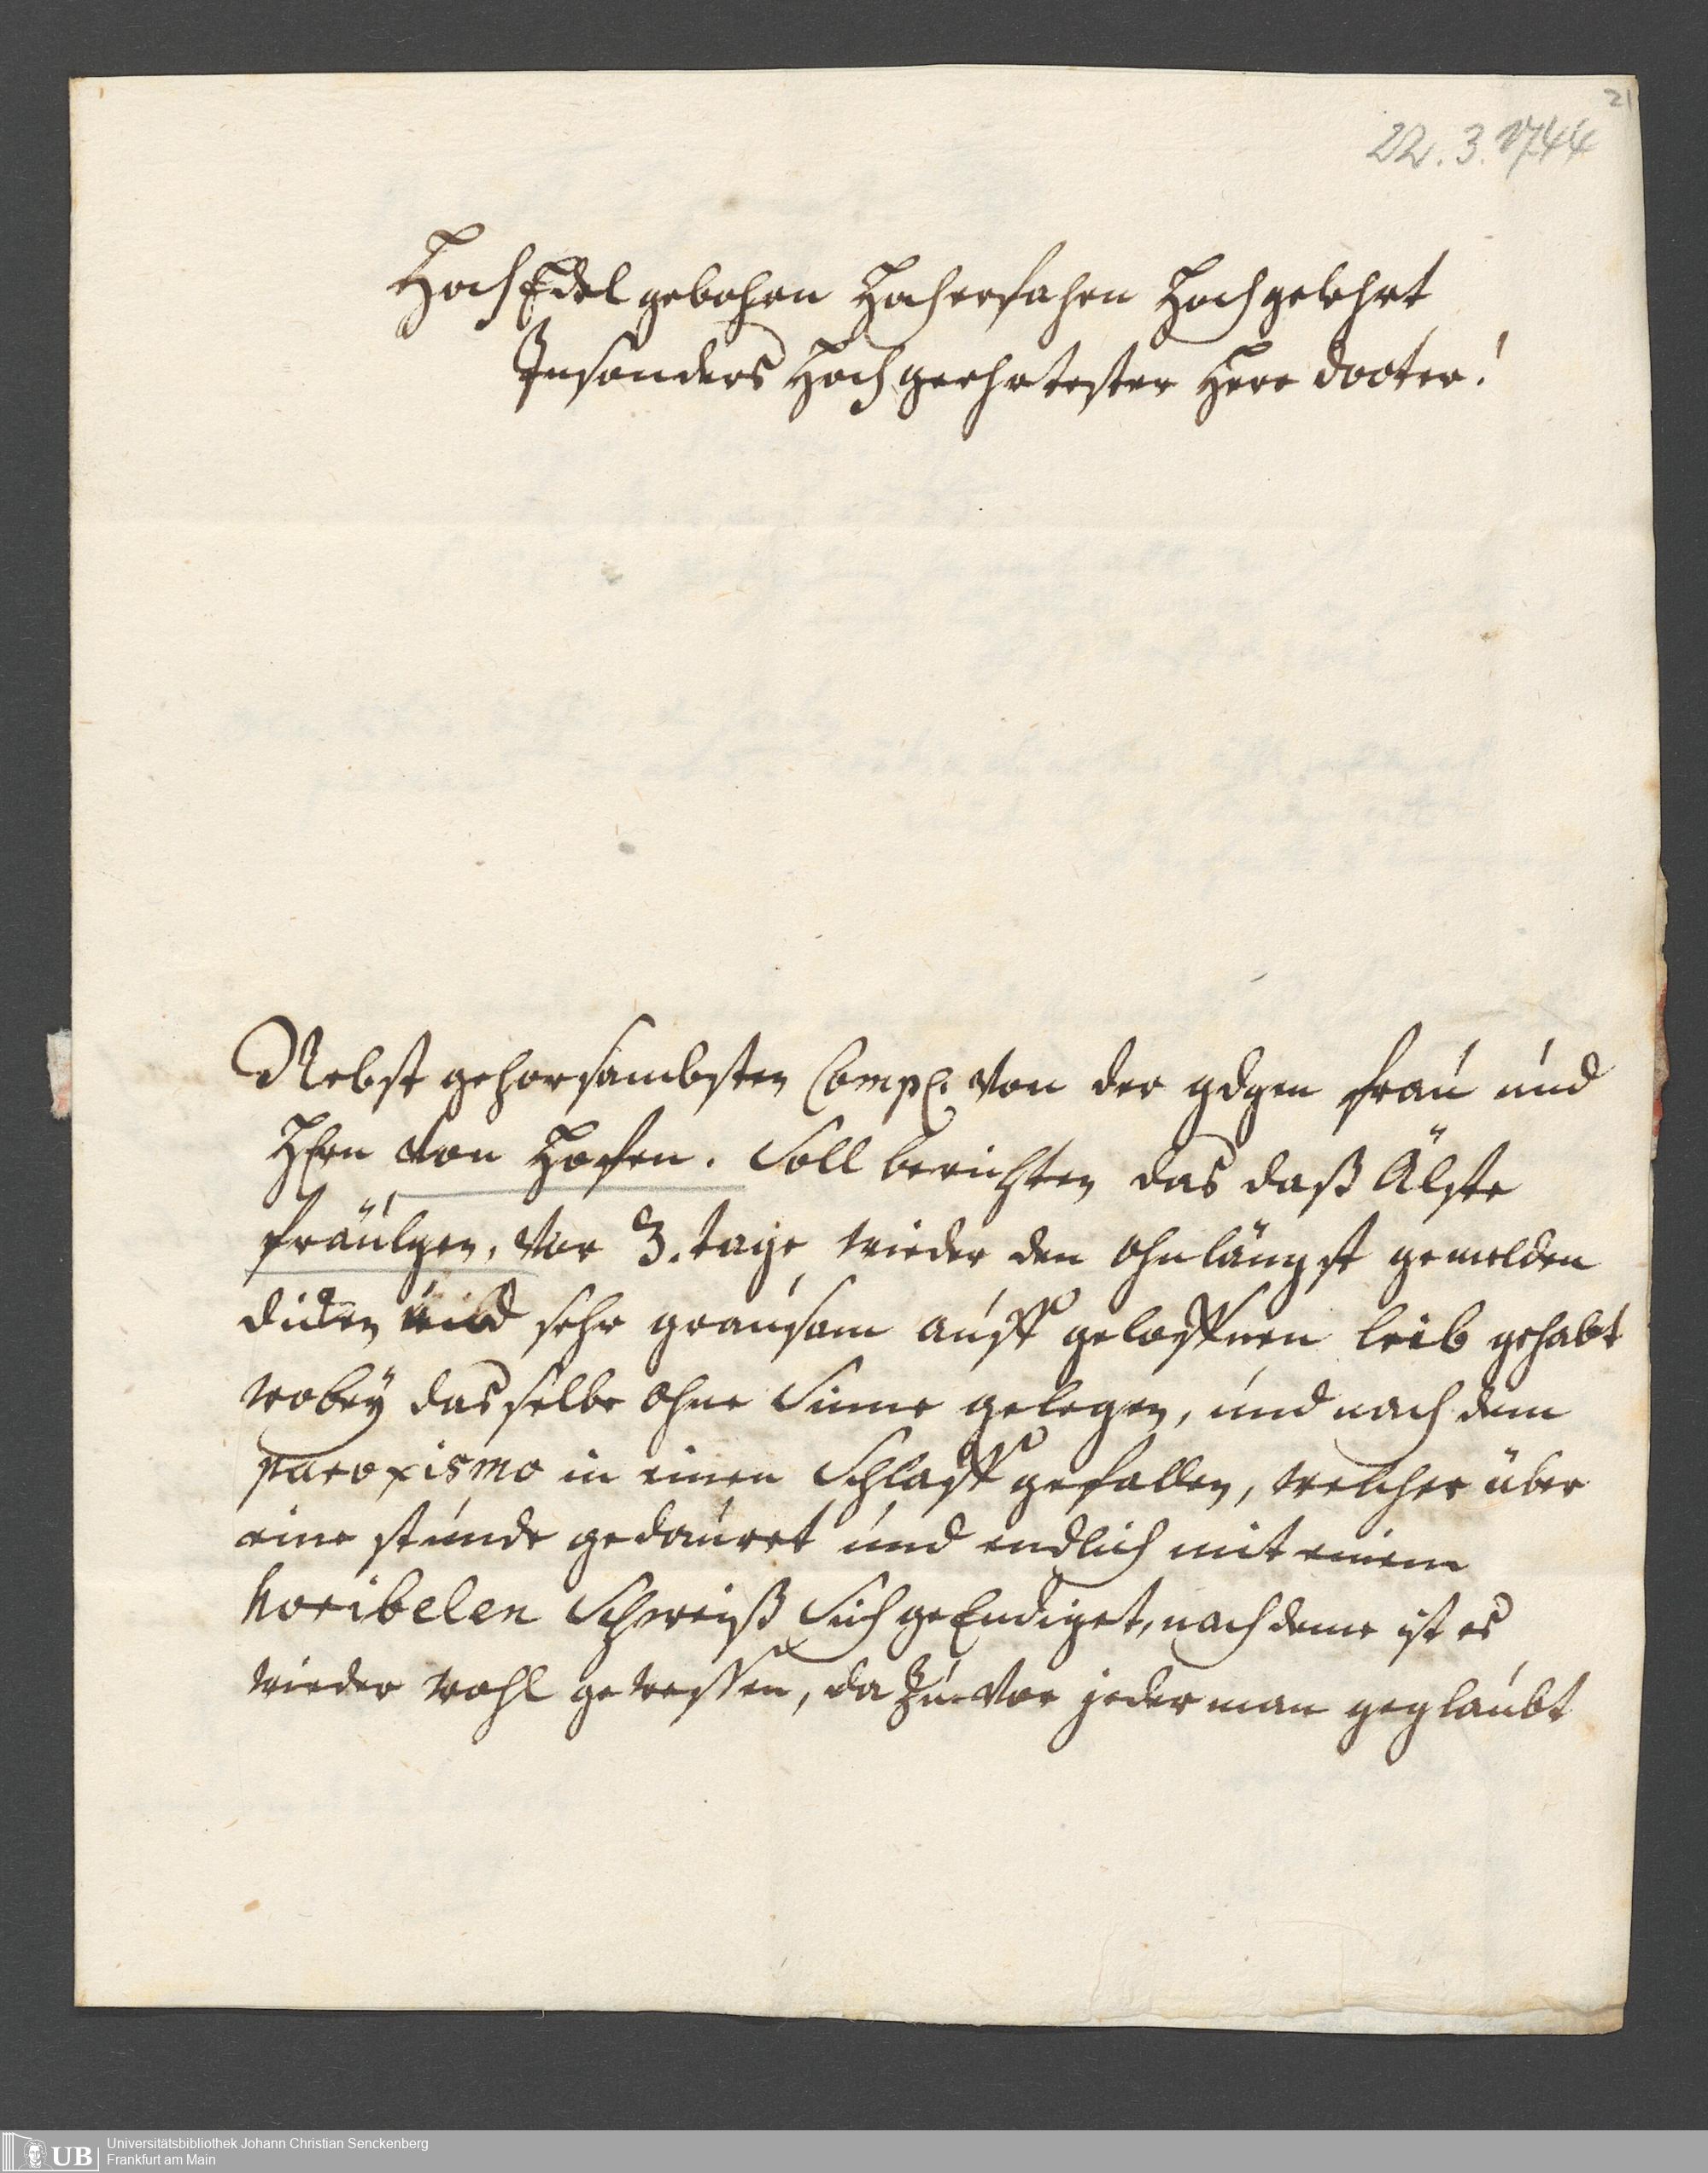 21
22. 3. 1744
HochEdel gebohrn Hocherfahrn Hochgelehrt
Insonders Hochgeehrtester Herr docter!
Nebst gehorsambsten Compl. von der gdgen frau und
Hhrn von Hofen. Soll berichten das daß Älste
fräulgen, vor 3. tage wieder den ohnlängst gemelden
dicken und sehr grausam auff geloffnen leib gehabt
wobey dasselbe ohne Sinne gelegen, und nach dem
paroxismo in einen Schlaff gefallen, welcher über
eine stunde gedauret und endlich mit einem
horibelen Schweiß Sich geEndiget, nach deme ist es
wieder wohl gewessen, da zu vor jeder man geglaubt
UB
Universitätsbibliothek Johann Christian Senckenberg
Frankfurt am Main